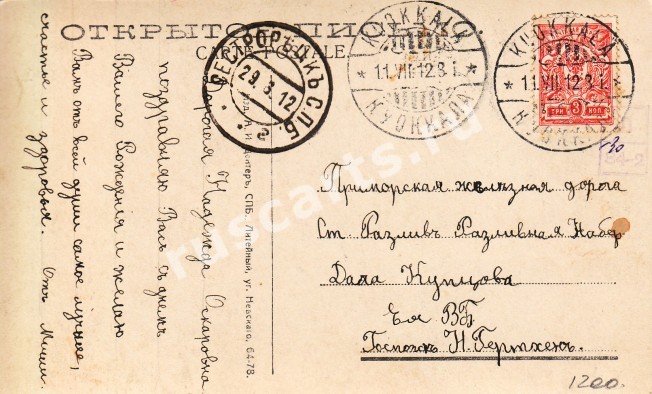 ОТКРЫТОЕ ПИСЬМО
CARTE POSTALE.
СЕСТРОРѢЦКЪ СПБ
29.6.12
KUOKKALA
11.VII.12.8 i.
КУОККАЛА
KUOKKALA
11.VII.12.8 i.
ТРИ 3 КОП
Дорогая Надежда Оскаровна
поздравляю Васъ съ днемъ
Вашего Рожденія и желаю
Вамъ отъ всей души самое лучшее,
счастье и здоровья. Отъ Миши.
СПБ., Литейный, уг. Невскаго, 64-78.
Приморская желѣзная дорога
Ст. Разливъ Разливная Набер
Дача Купцова
Ея ВБ
Госпожѣ Н. Гертхенъ.
1200.
ruscarts.ru